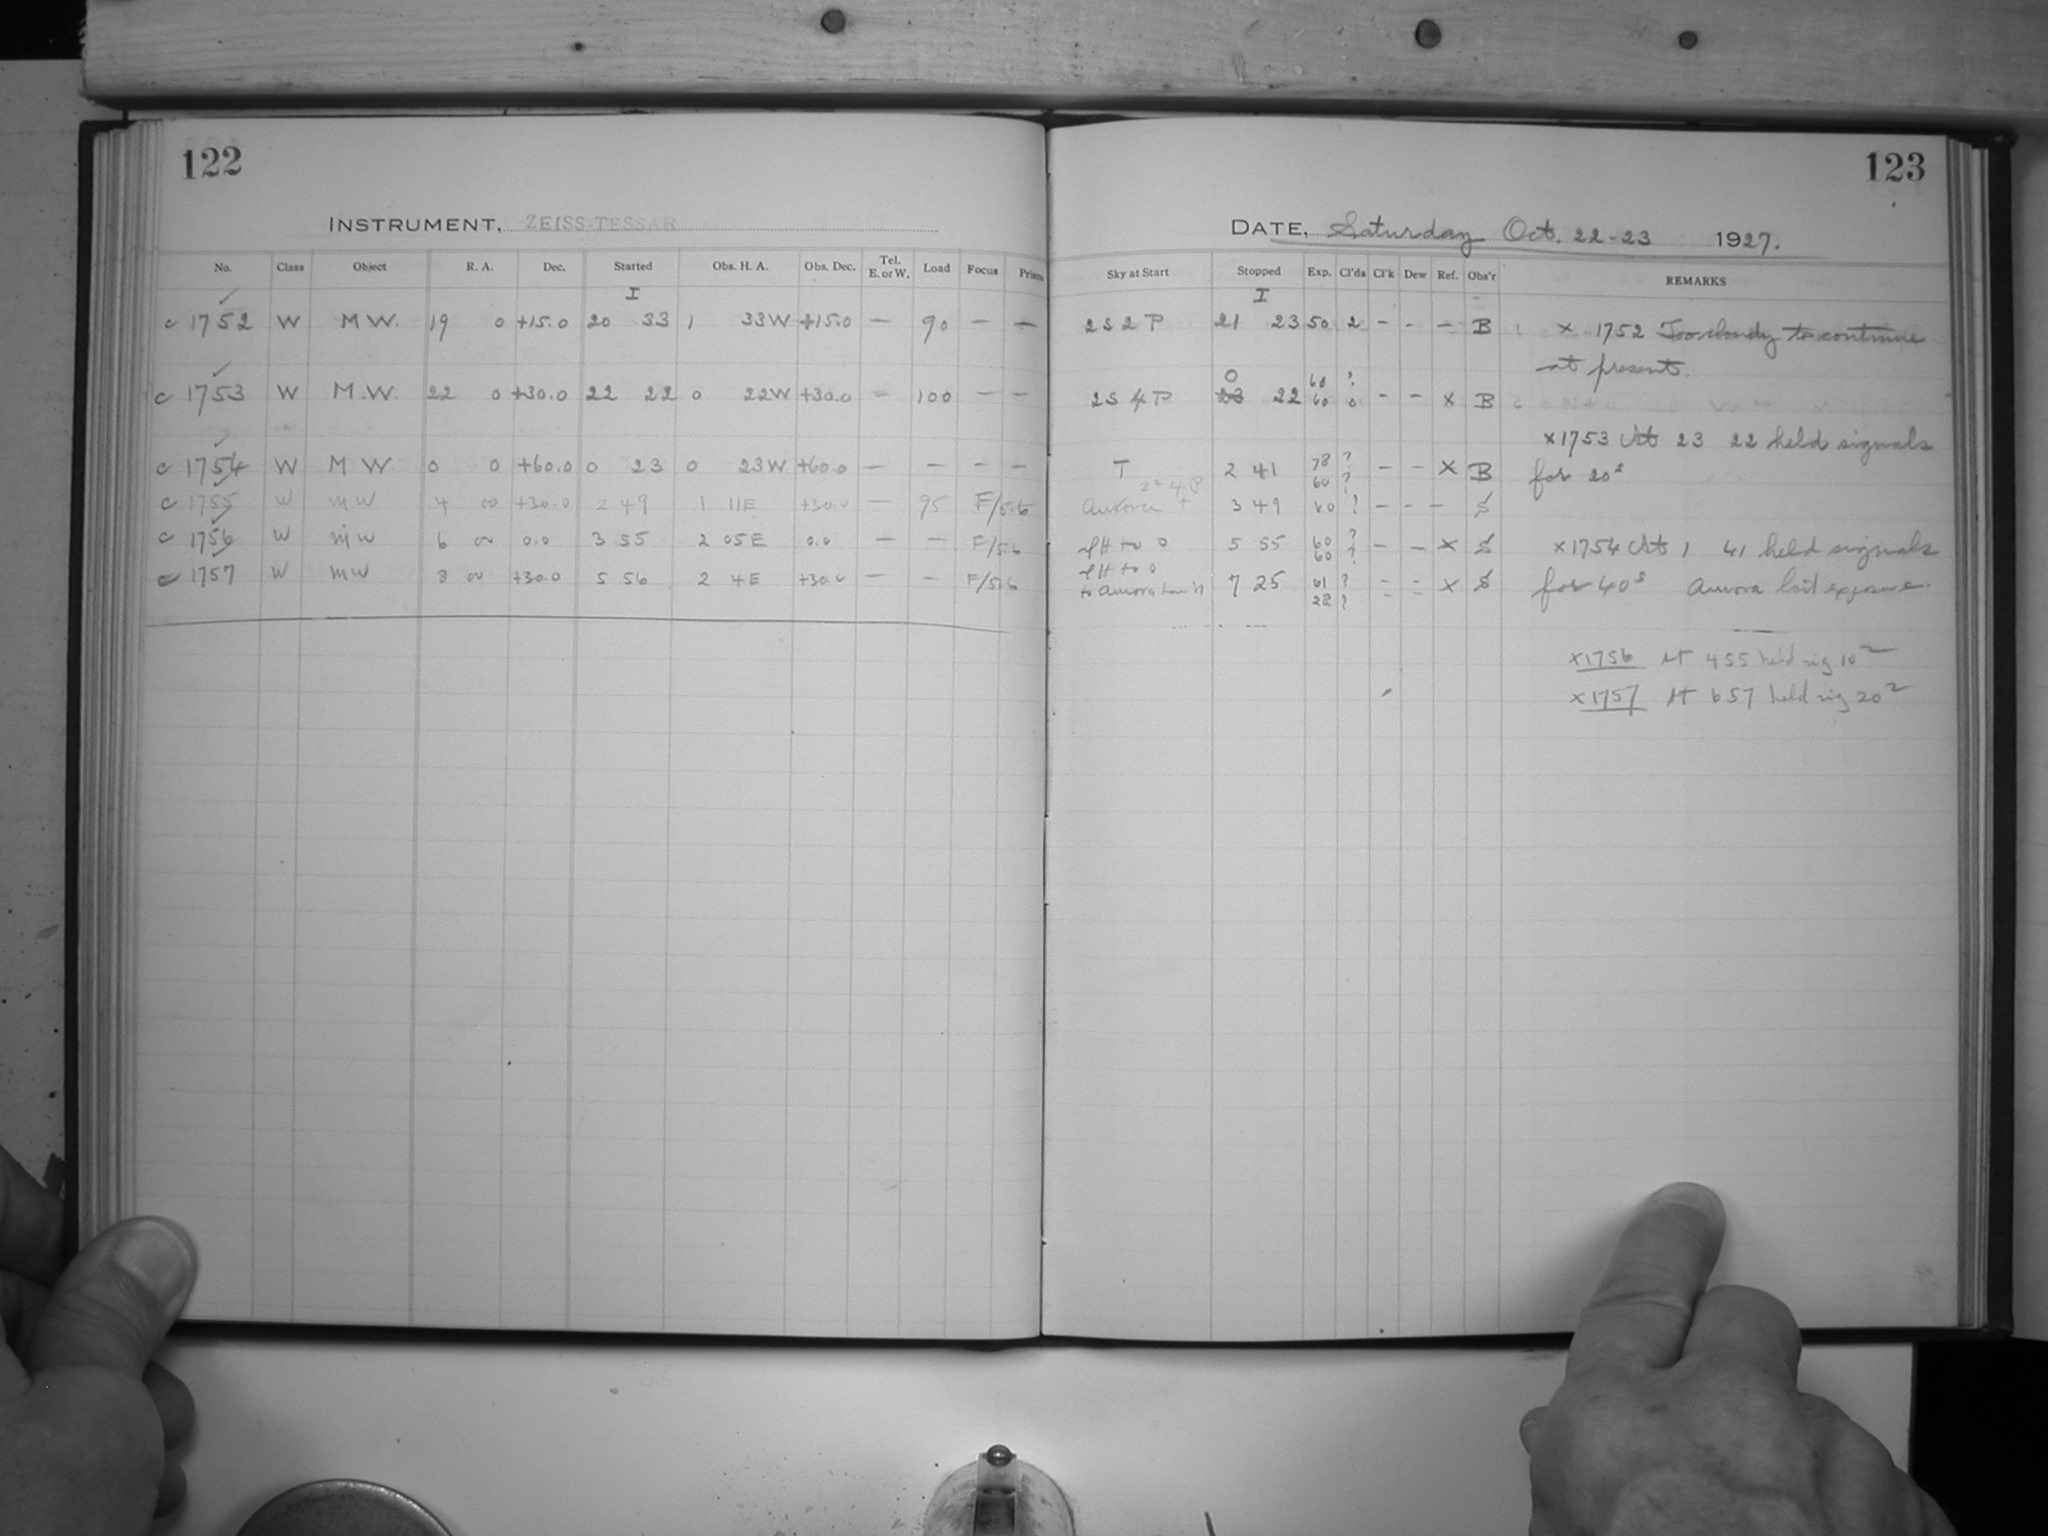 122
123
INSTRUMENT, ZEISS-TESSAR
DATE, Saturday Oct. 22-23 1927.
No. Class Object R. A. Dec. Started Obs. H. A. Obs. Dec. Tel. E. or W. Load Focus Prism
Sky at Start Stopped Exp. Cl'ds Cl'k Dew Ref. Obs'r REMARKS
I I
c 1752 W M W. 19 0 +15.0 20 33 1 33W +15.0 — 90 — — 2S 2 P 21 23 50 2 - - - B x 1752 Too cloudy to continue
at present.
0 60 ?
c 1753 W M.W. 22 0 +30.0 22 22 0 22W +30.0 - 100 — — 2S 4 P 23 22 60 0 - - x B
x1753 At 23 22 held signals
78 ?
c 1754 W M W. 0 0 +60.0 0 23 0 23W +60.0 — — — — T 2 41 60 ? - - x B for 20s
c 1755 W MW 4 00 +30.0 2 49 1 11E +30.0 — 95 F/5.6 Aurora + 3 49 60 ? - - - S
c 1756 W MW 6 00 0.0 3 55 2 05E 0.0 — — F/5.6 H to 0 5 55 60 ? 60 ? - - x S x1754 At 1 41 held signals
H to 0
c 1757 W MW 8 00 +30.0 5 56 2 4E +30.0 — — F/5.6 to Aurora 7 25 61 ? - - x S for 40s Aurora last exposure.
28 ?
x1756 At 455 held sig 10
x1757 At 657 held sig 20